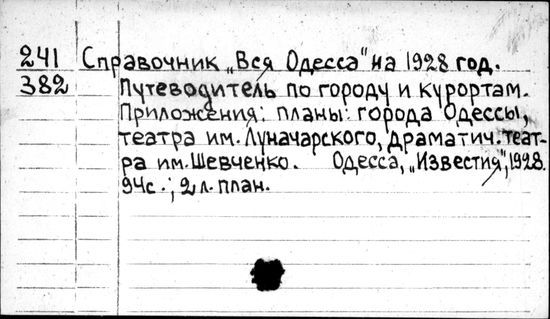 241 Справочник „Вся Одесса" на 1928 год.
382 Путеводитель по городу и курортам.
Приложения: планы: города Одессы,
театра им. Луначарского, драматич. теат-
ра им. Шевченко. Одесса, „Известия", 1928.
94с.; 2 л. план.